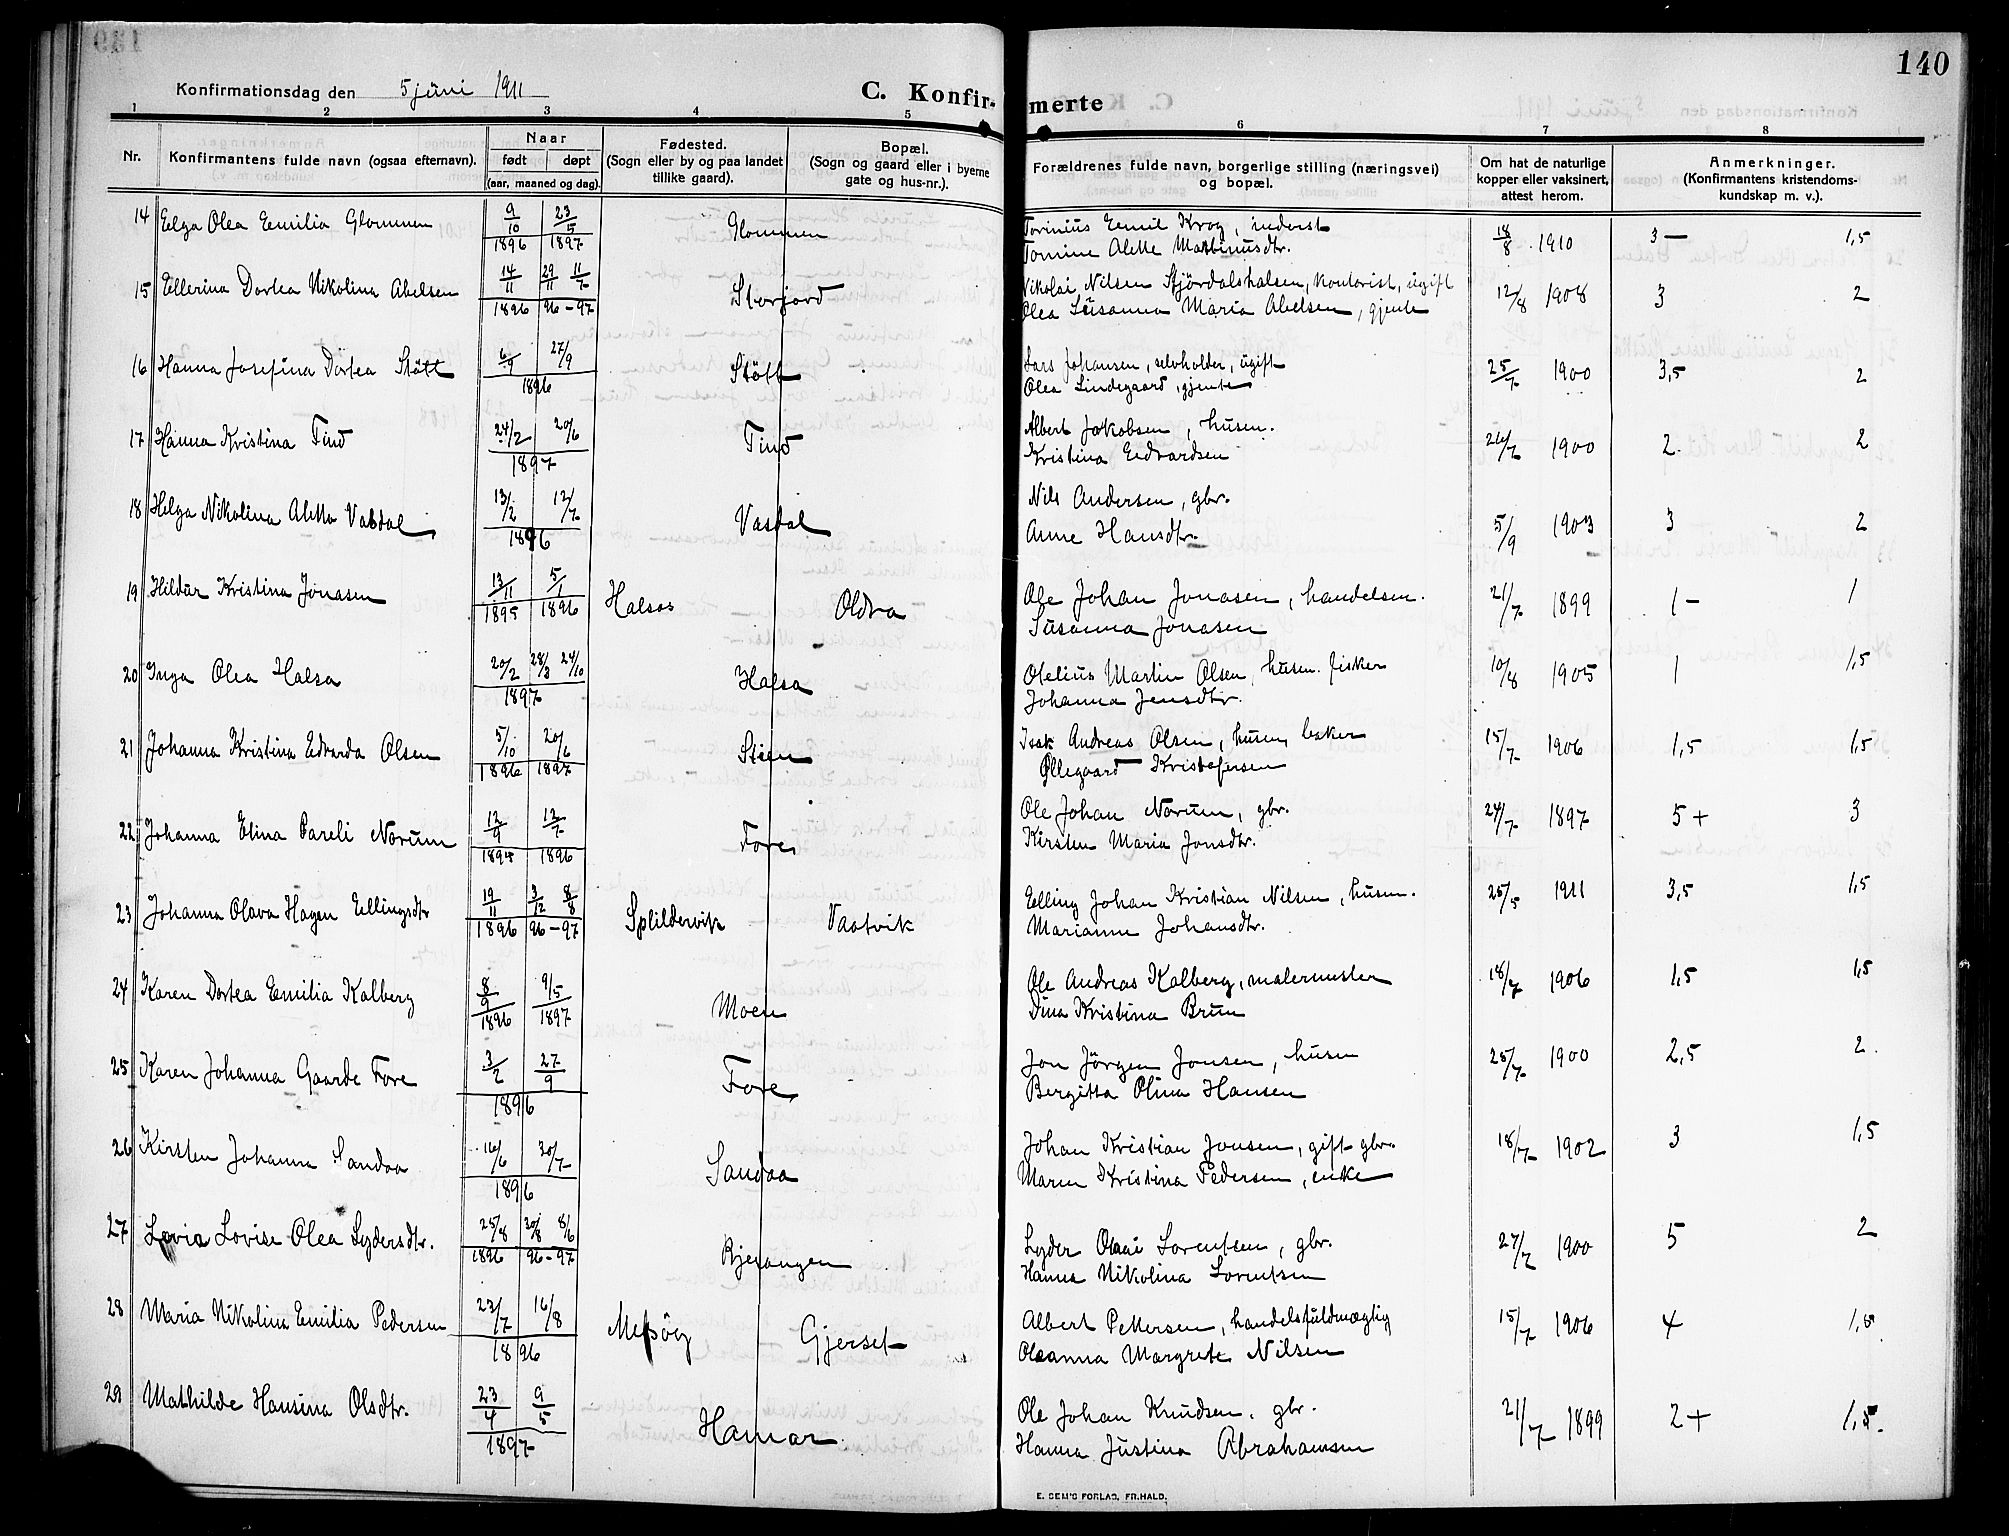 140
Konfirmationsdag den 5 juni 1911
C. Konfirmerte
1 2 3 4 5 6 7 8
Nr.
Konfirmantens fulde navn (ogsaa efternavn).
Naar
født døpt
(aar, maaned og dag).
Fødested.
(Sogn eller by og paa landet
tillike gaard).
Bopæl.
(Sogn og gaard eller i byerne
gate og hus-nr.).
Forældrenes fulde navn, borgerlige stilling (næringsvei)
og bopæl.
Om hat de naturlige
kopper eller vaksinert,
attest herom.
Anmerkninger.
(Konfirmantens kristendoms-
kundskap m. v.).
14 Elga Olea Emilia Glommen 9/10 1896 23/5 1897 Glommen
Torinius Emil Krog, inderst
Tomine Alette Martinusdtr. 18/8 1910 3 — 1,5
15 Ellerina Dortea Nikolina Abelsen 14/11 1896 29/11 11/7 96-97 Storjord
Nikolai Nilsen Stjördalshalsen, kontorist, ugift
Olea Susanna Maria Abelsen, gjente 12/8 1908 3 2
16 Hanna Josefina Dortea Stött 6/9 27/9 1896 Stött
Lars Johansen, selvholder, ugift
Olea Lindegaard, gjente 25/7 1900 3,5 2
17 Hanna Kristina Tind 24/2 20/6 1897 Tind
Albert Jakobsen, husm.
Kristina Edvardsen 26/7 1900 2. 2
18 Helga Nikolina Aletta Vasdal 13/2 12/7 1896 Vasdal
Nils Andersen, gbr.
Anne Hansdtr. 5/9 1903 3 2
19 Hildur Kristina Jonasen 13/11 1895 5/1 1896 Halsos Oldra
Ole Johan Jonasen, handelsm.
Susanna Jonasen 21/7 1899 1 - 1
20 Inga Olea Halsa 20/2 28/3 24/10 1897 Halsa
Otelius Martin Olsen, husm. fisker
Johanna Jensdtr. 10/8 1905 1 1,5
21 Johanna Kristina Edvarda Olsen 5/10 1896 20/6 1897 Stien
Isak Andreas Olsen, husm, baker
Øllegaard Kristofersen 15/7 1906 1,5 1,5
22 Johanna Elina Pareli Norum 12/9 1895 12/7 1896 Fore
Ole Johan Norum, gbr.
Kirsten Maria Jonsdtr. 24/7 1897 5+ 3
23 Johanna Olava Hagen Ellingsdtr 19/11 1896 3/12 8/8 96-97 Spildervik Vaatvik
Elling Johan Kristian Nilsen, husm.
Marianne Johansdtr. 25/5 1911 3,5 1,5
24 Karen Dortea Emilia Kalberg 8/9 1896 9/5 1897 Moen
Ole Andreas Kalberg, malermester
Dina Kristina Brun 18/7 1906 1,5 1,5
25 Karen Johanna Gaarde Fore 3/2 27/9 1896 Fore
Jon Jörgen Jonsen, husm
Bergitta Olina Hansen 25/7 1900 2,5 2.
26 Kirsten Johanna Sandaa 16/6 30/7 1896 Sandaa
Johan Kristian Jonsen, gift gbr.
Maren Kristina Pedersen, enke 18/7 1902 3 1,5
27 Lovia Lovise Olea Lydersdtr. 25/8 1896 30/8 8/6 96-97 Kjelangen
Lyder Olai Lorentsen, gbr.
Hanna Nikolina Lorentsen 27/7 1900 5 2
28 Maria Nikolina Emilia Pedersen 23/7 16/8 1896 Mesöy Gjerset
Albert Pettersen, handelsfuldmægtig
Oleanna Margrete Nilsen 15/7 1906 4 1,5
29 Mathilde Hansina Olsdtr. 23/4 9/5 1897 Hamar
Ole Johan Knudsen, gbr.
Hanna Justina Abrahamsen 21/7 1899 2+ 1,5.
E. SEM'S FORLAG, FR.HALD.